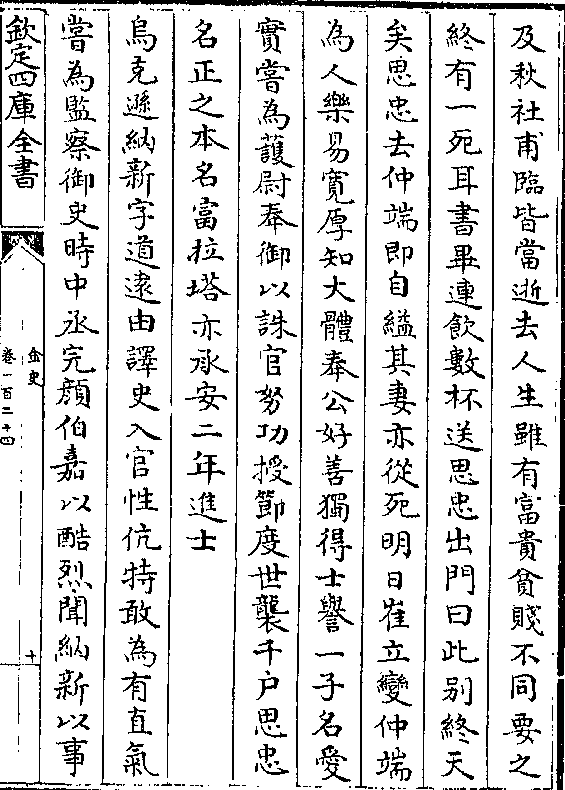 及秋社甫臨皆當逝去人生雖有富貴貧賤不同要之
終有一死耳書畢連飲數杯送思忠出門曰此别終天
矣思忠去仲端即自縊其妻亦從死明日崔立變仲端
為人樂易寛厚知大體奉公好善獨得士譽一子名愛
實嘗為䕶尉奉御以誅官努功授節度世襲千户思忠
名正之本名富拉塔亦承安二年進士
烏克遜納新字道逺由譯史入官性伉特敢為有直氣
嘗為監察御史時中丞完顔伯嘉以酷烈聞納新以事
欽定四庫全書
金史
卷一百二十四
十